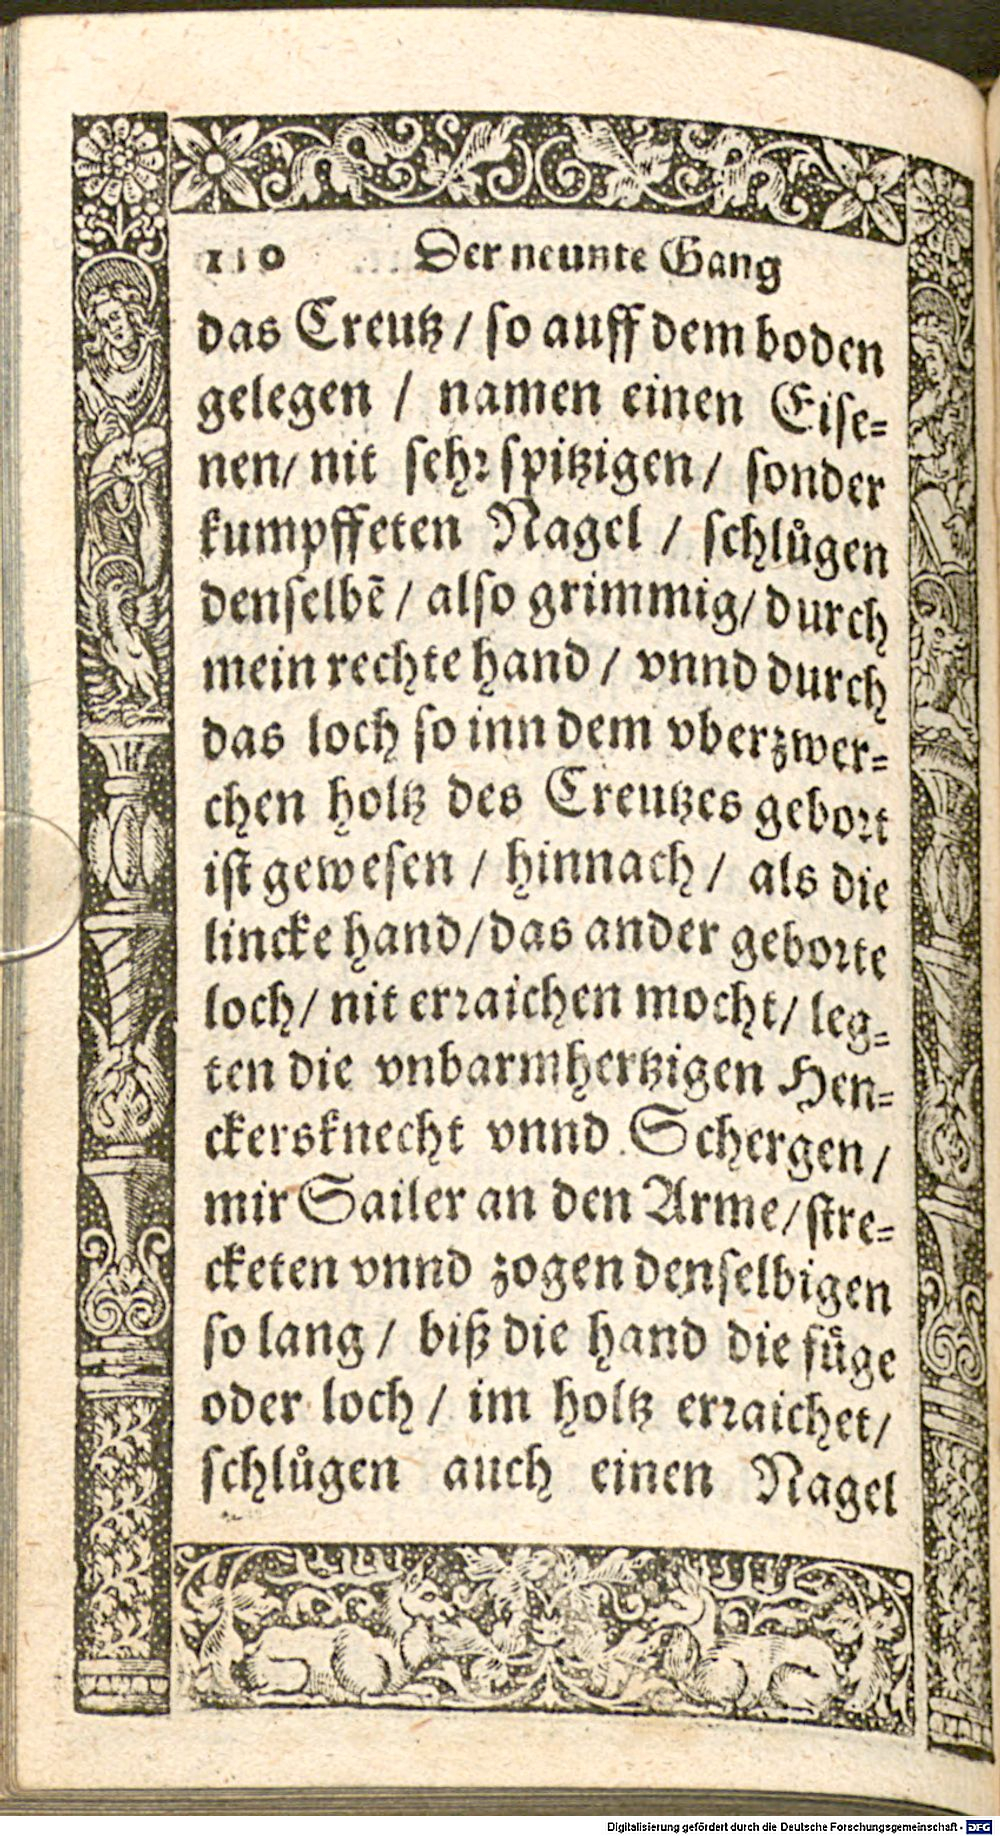 110 Der neunte Gang
das Creutz / so auff dem boden
gelegen / namen einen Eise=
nen / nit sehr spitzigen / sonder
kumpffeten Nagel / schlůgen
denselbẽ / also grimmig / durch
mein rechte hand / vnnd durch
das loch so inn dem vberzwer=
chen holtz des Creutzes gebort
ist gewesen / hinnach / als die
lincke hand / das ander geborte
loch / nit erraichen mocht / leg=
ten die vnbarmhertzigen Hen=
ckersknecht vnnd Schergen /
mir Sailer an den Arme / stre=
cketen vnnd zogen denselbigen
so lang / biß die hand die fůge
oder loch / im holtz erraichet /
schlůgen auch einen Nagel
Digitalisierung gefördert durch die Deutsche Forschungsgemeinschaft - DFG